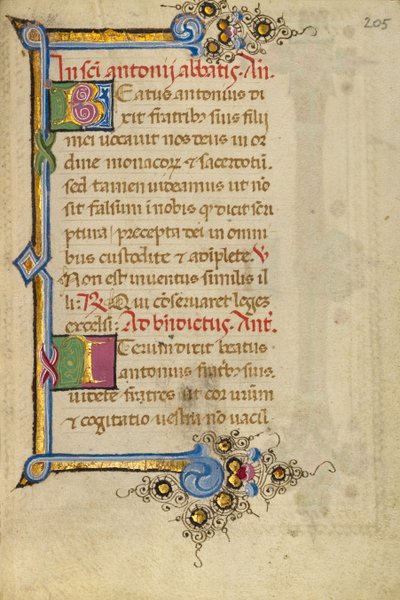 205
In sc̄i antonij abbatis. An̄.
BEatus antonius di
xit fratribꝰ suis filij
mei uocauit nos deus in or
dine monacorꝝ & sacerdotū.
sed tamen uideamus ut nō
sit falsum ī nobis qđ dicit scri
ptura / precepta dei in omni
bus custodite & adīplete. V
Non est inuentus similis il
li: R Qui cōseruaret legeʒ
excelsi: Ad bn̄dictus. Ant.
ITerum dicit beatus
antonius fratribꝰ suis.
uidete fratres ut cor ur̄um
& cogitatio uestra nō uacil